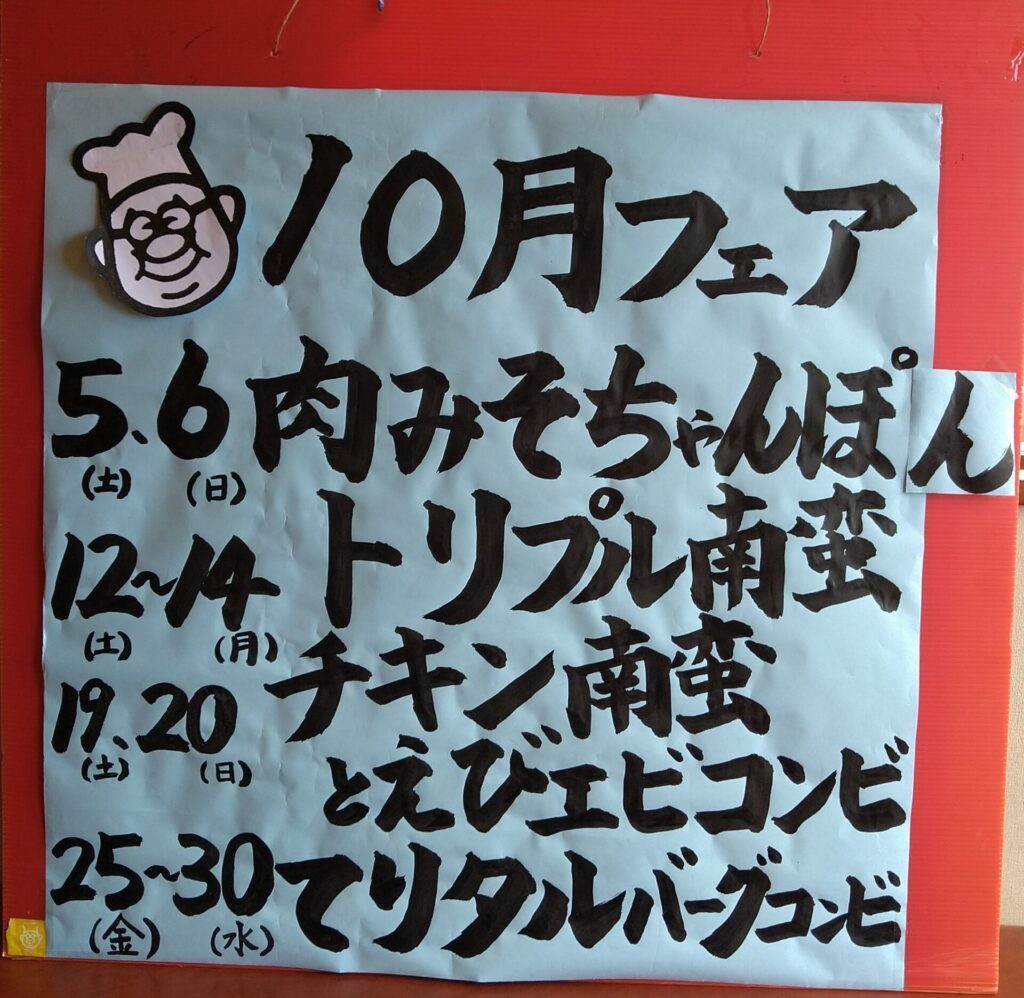 10月フェア
5、6 肉みそちゃんぽん
(土) (日)
12〜14 トリプル南蛮
(土) (月)
チキン南蛮
19、20
(土) (日)
とえびエビコンビ
25〜30 てりタルバーグコンビ
(金) (水)